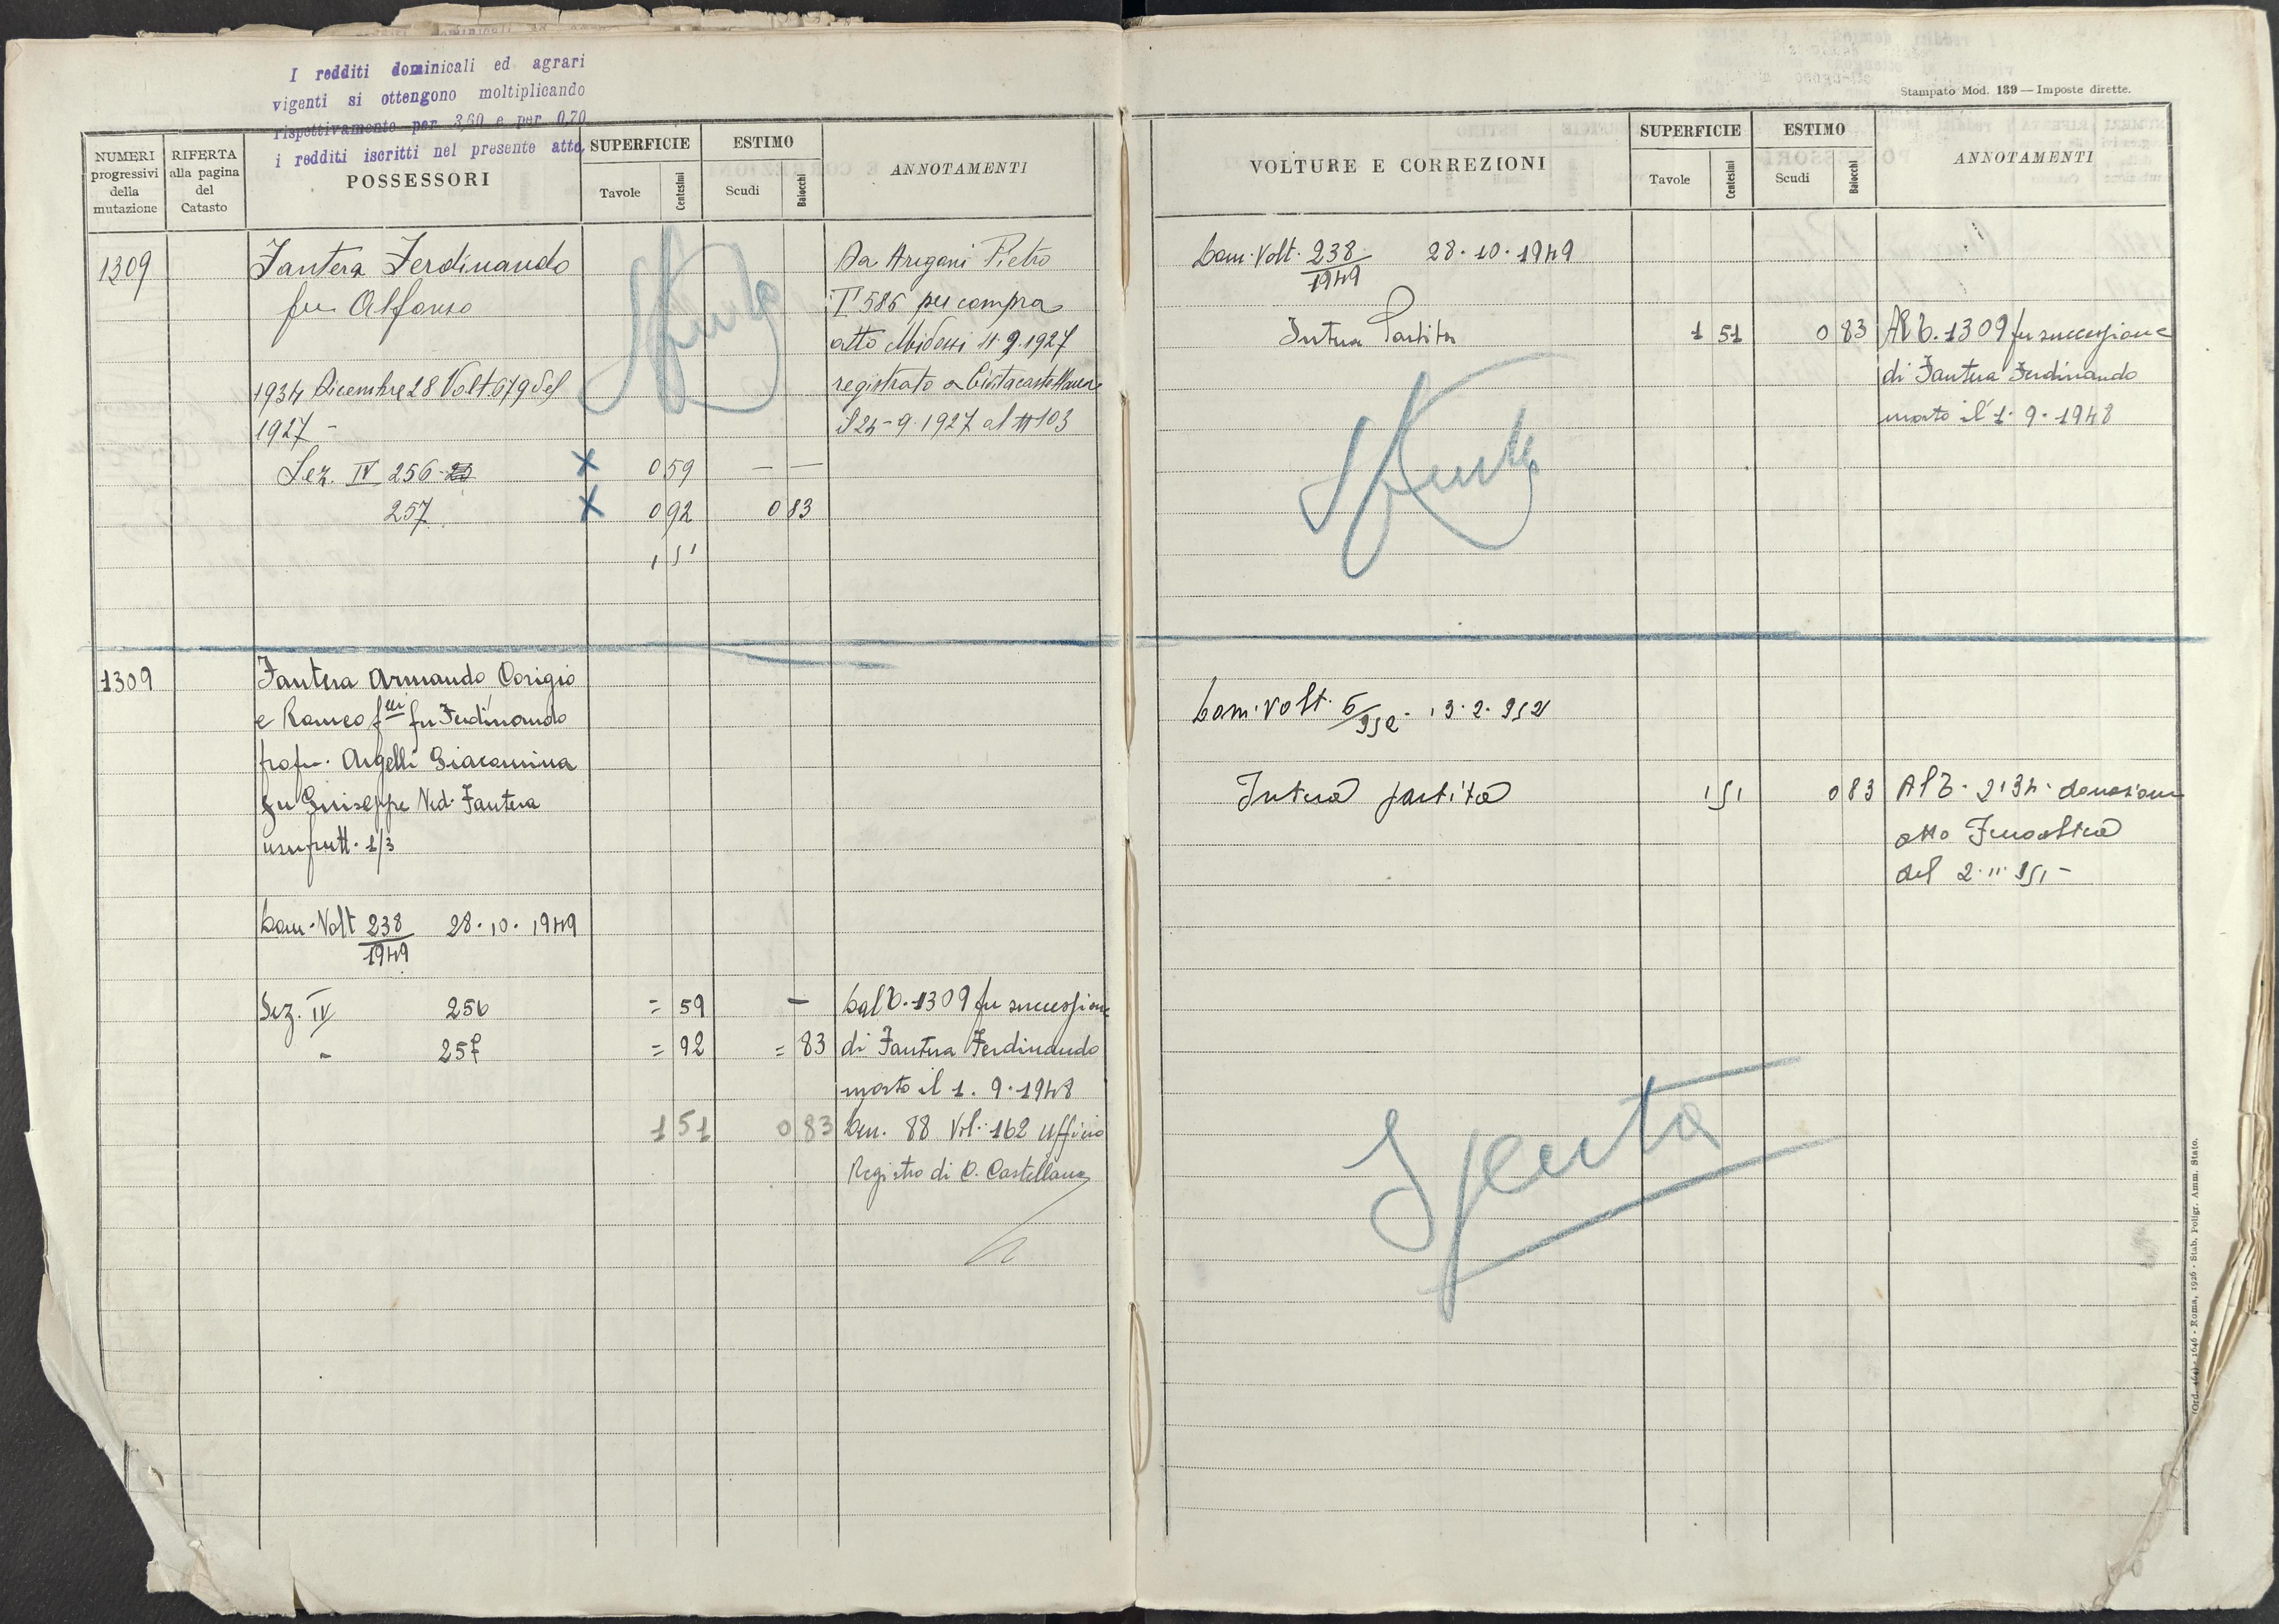 I redditi dominicali ed agrari
vigenti si ottengono moltiplicando
rispettivamente per 3,60 e per 0,70
i redditi iscritti nel presente atto.
NUMERI progressivi della mutazione
RIFERTA alla pagina del Catasto
POSSESSORI
SUPERFICIE
Tavole
Centesimi
ESTIMO
Scudi
Baiocchi
ANNOTAMENTI
1309
Fantera Ferdinando
fu Alfonso
1934 Dicembre 28 Volt. 679 del
1927 -
Sez. IV 256
059 — —
257
092 083
1 51
Da Aregani Pietro
T 586 per compra
atto 4.9.1927
registrato a Civitacastellana
il 24-9-1927 al N 103
Spenta
1309
Fantera Armando Origio
e Romeo flli fu Ferdinando
propr. Argelli Giacomina
fu Giuseppe Ved. Fantera
usufrutt. 1/3
Dom. Volt 238/1949 28.10.1949
Sez. IV 256 = 59 —
- 257 = 92 = 83
1 51 0 83
Dal C. 1309 per successione
di Fantera Ferdinando
morto il 1.9.1948
Den. 88 Vol. 162 Ufficio
Registro di C. Castellana
Stampato Mod. 139 — Imposte dirette.
VOLTURE E CORREZIONI
SUPERFICIE
Tavole
Centesimi
ESTIMO
Scudi
Baiocchi
ANNOTAMENTI
Dom. Volt. 238/1949 28.10.1949
Intera Partita 1 51 0 83
Al C. 1309 per successione
di Fantera Ferdinando
morto il 1.9.1948
Spenta
Dom. Volt. 6/952. 13.2.952
Intera partita 1 51 0 83
Al C. 2134. donazione
atto
del 2.11.951 -
Spenta
1646 - Roma, 1926 - Stab. Poligr. Amm. Stato.